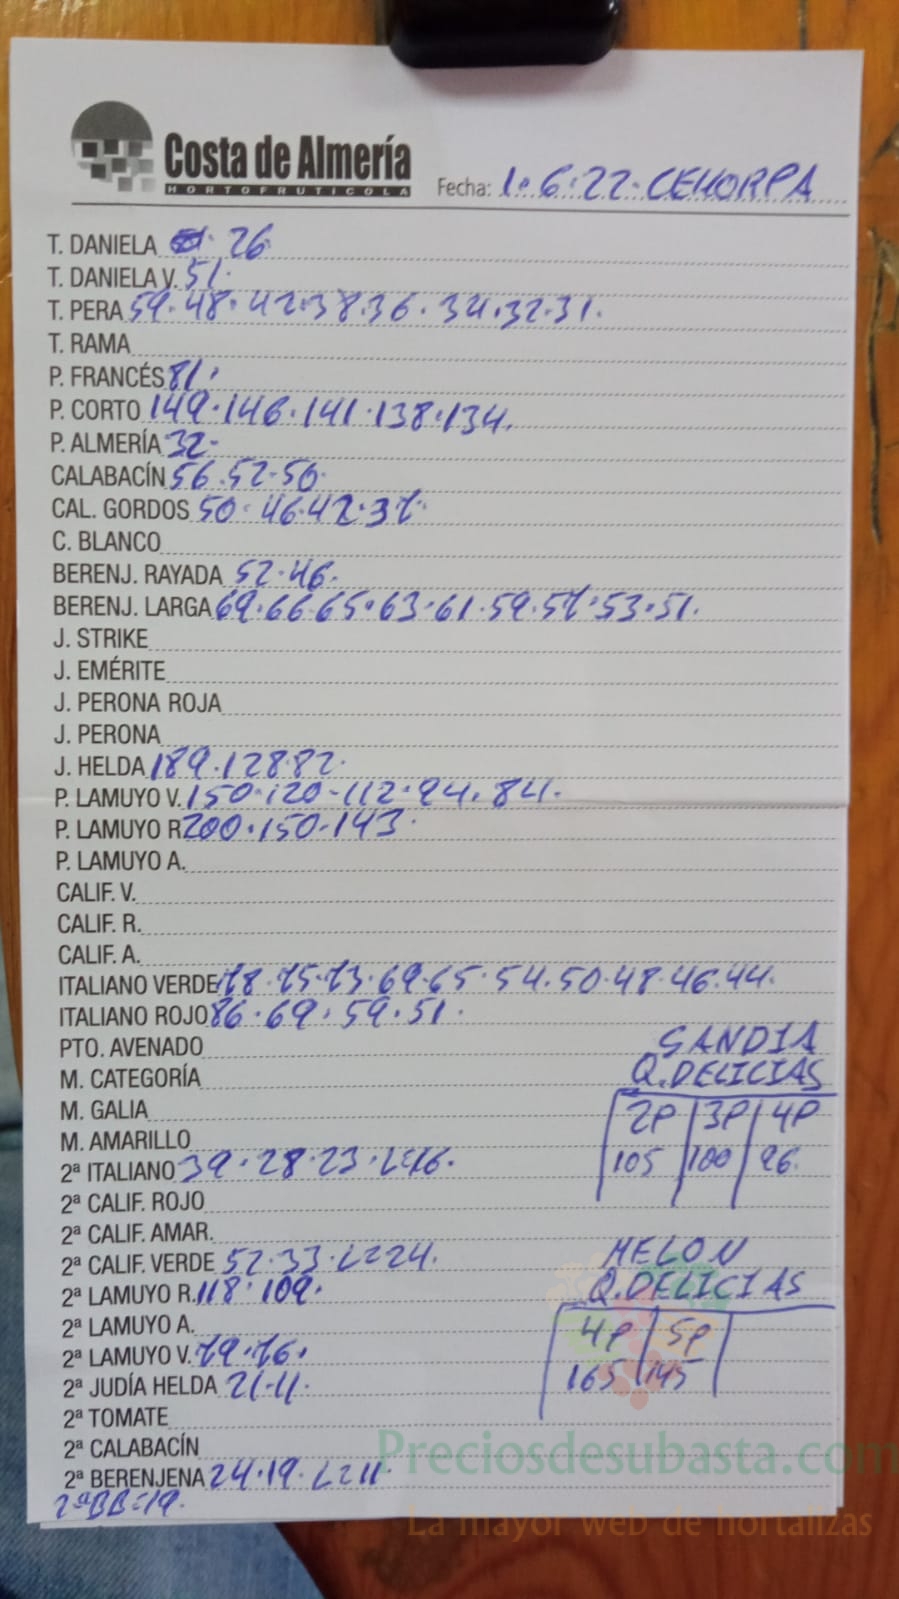 Costa de Almería
HORTOFRUTICOLA
Fecha: 1.6.22.CEHORPA
T. DANIELA 26
T. DANIELA V. 51.
T. PERA 59.48.42.38.36.34.32.31.
T. RAMA
P. FRANCÉS 81.
P. CORTO 149.146.141.138.134.
P. ALMERÍA 32-
CALABACÍN 56.52.50.
CAL. GORDOS 50.46.42.37.
C. BLANCO
BERENJ. RAYADA 52.46.
BERENJ. LARGA 69.66.65.63.61.59.57.53.51.
J. STRIKE
J. EMÉRITE
J. PERONA ROJA
J. PERONA
J. HELDA 189.128.82.
P. LAMUYO V. 150.120-112.94.84.
P. LAMUYO R 200.150-143.
P. LAMUYO A.
CALIF. V.
CALIF. R.
CALIF. A.
ITALIANO VERDE 78.75.73.69.65.54.50.48.46.44.
ITALIANO ROJO 86.69.59.51.
PTO. AVENADO
M. CATEGORÍA
M. GALIA
M. AMARILLO
2ª ITALIANO 39.28.23.L=16.
2ª CALIF. ROJO
2ª CALIF. AMAR.
2ª CALIF. VERDE 52.33.L=24.
2ª LAMUYO R. 118.109.
2ª LAMUYO A.
2ª LAMUYO V. 79.76.
2ª JUDÍA HELDA 21-11.
2ª TOMATE
2ª CALABACÍN
2ª BERENJENA 24.19.L=11.
2ªBB=19.
SANDIA
Q.DELICIAS
2P 3P 4P
105 100 96.
MELON
Q.DELICIAS
4P 5P
165 145
Preciosdesubasta.com
La mayor web de hortalizas